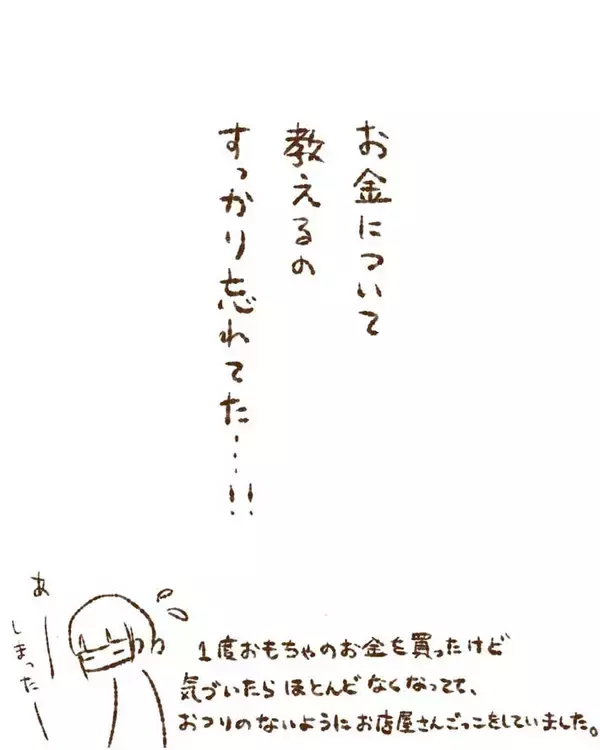 お金について
教えるの
すっかり忘れてた…!!
あ
しまった
1度おもちゃのお金を買ったけど
気づいたらほとんどなくなってて、
おつりのないようにお店屋さんごっこをしていました。